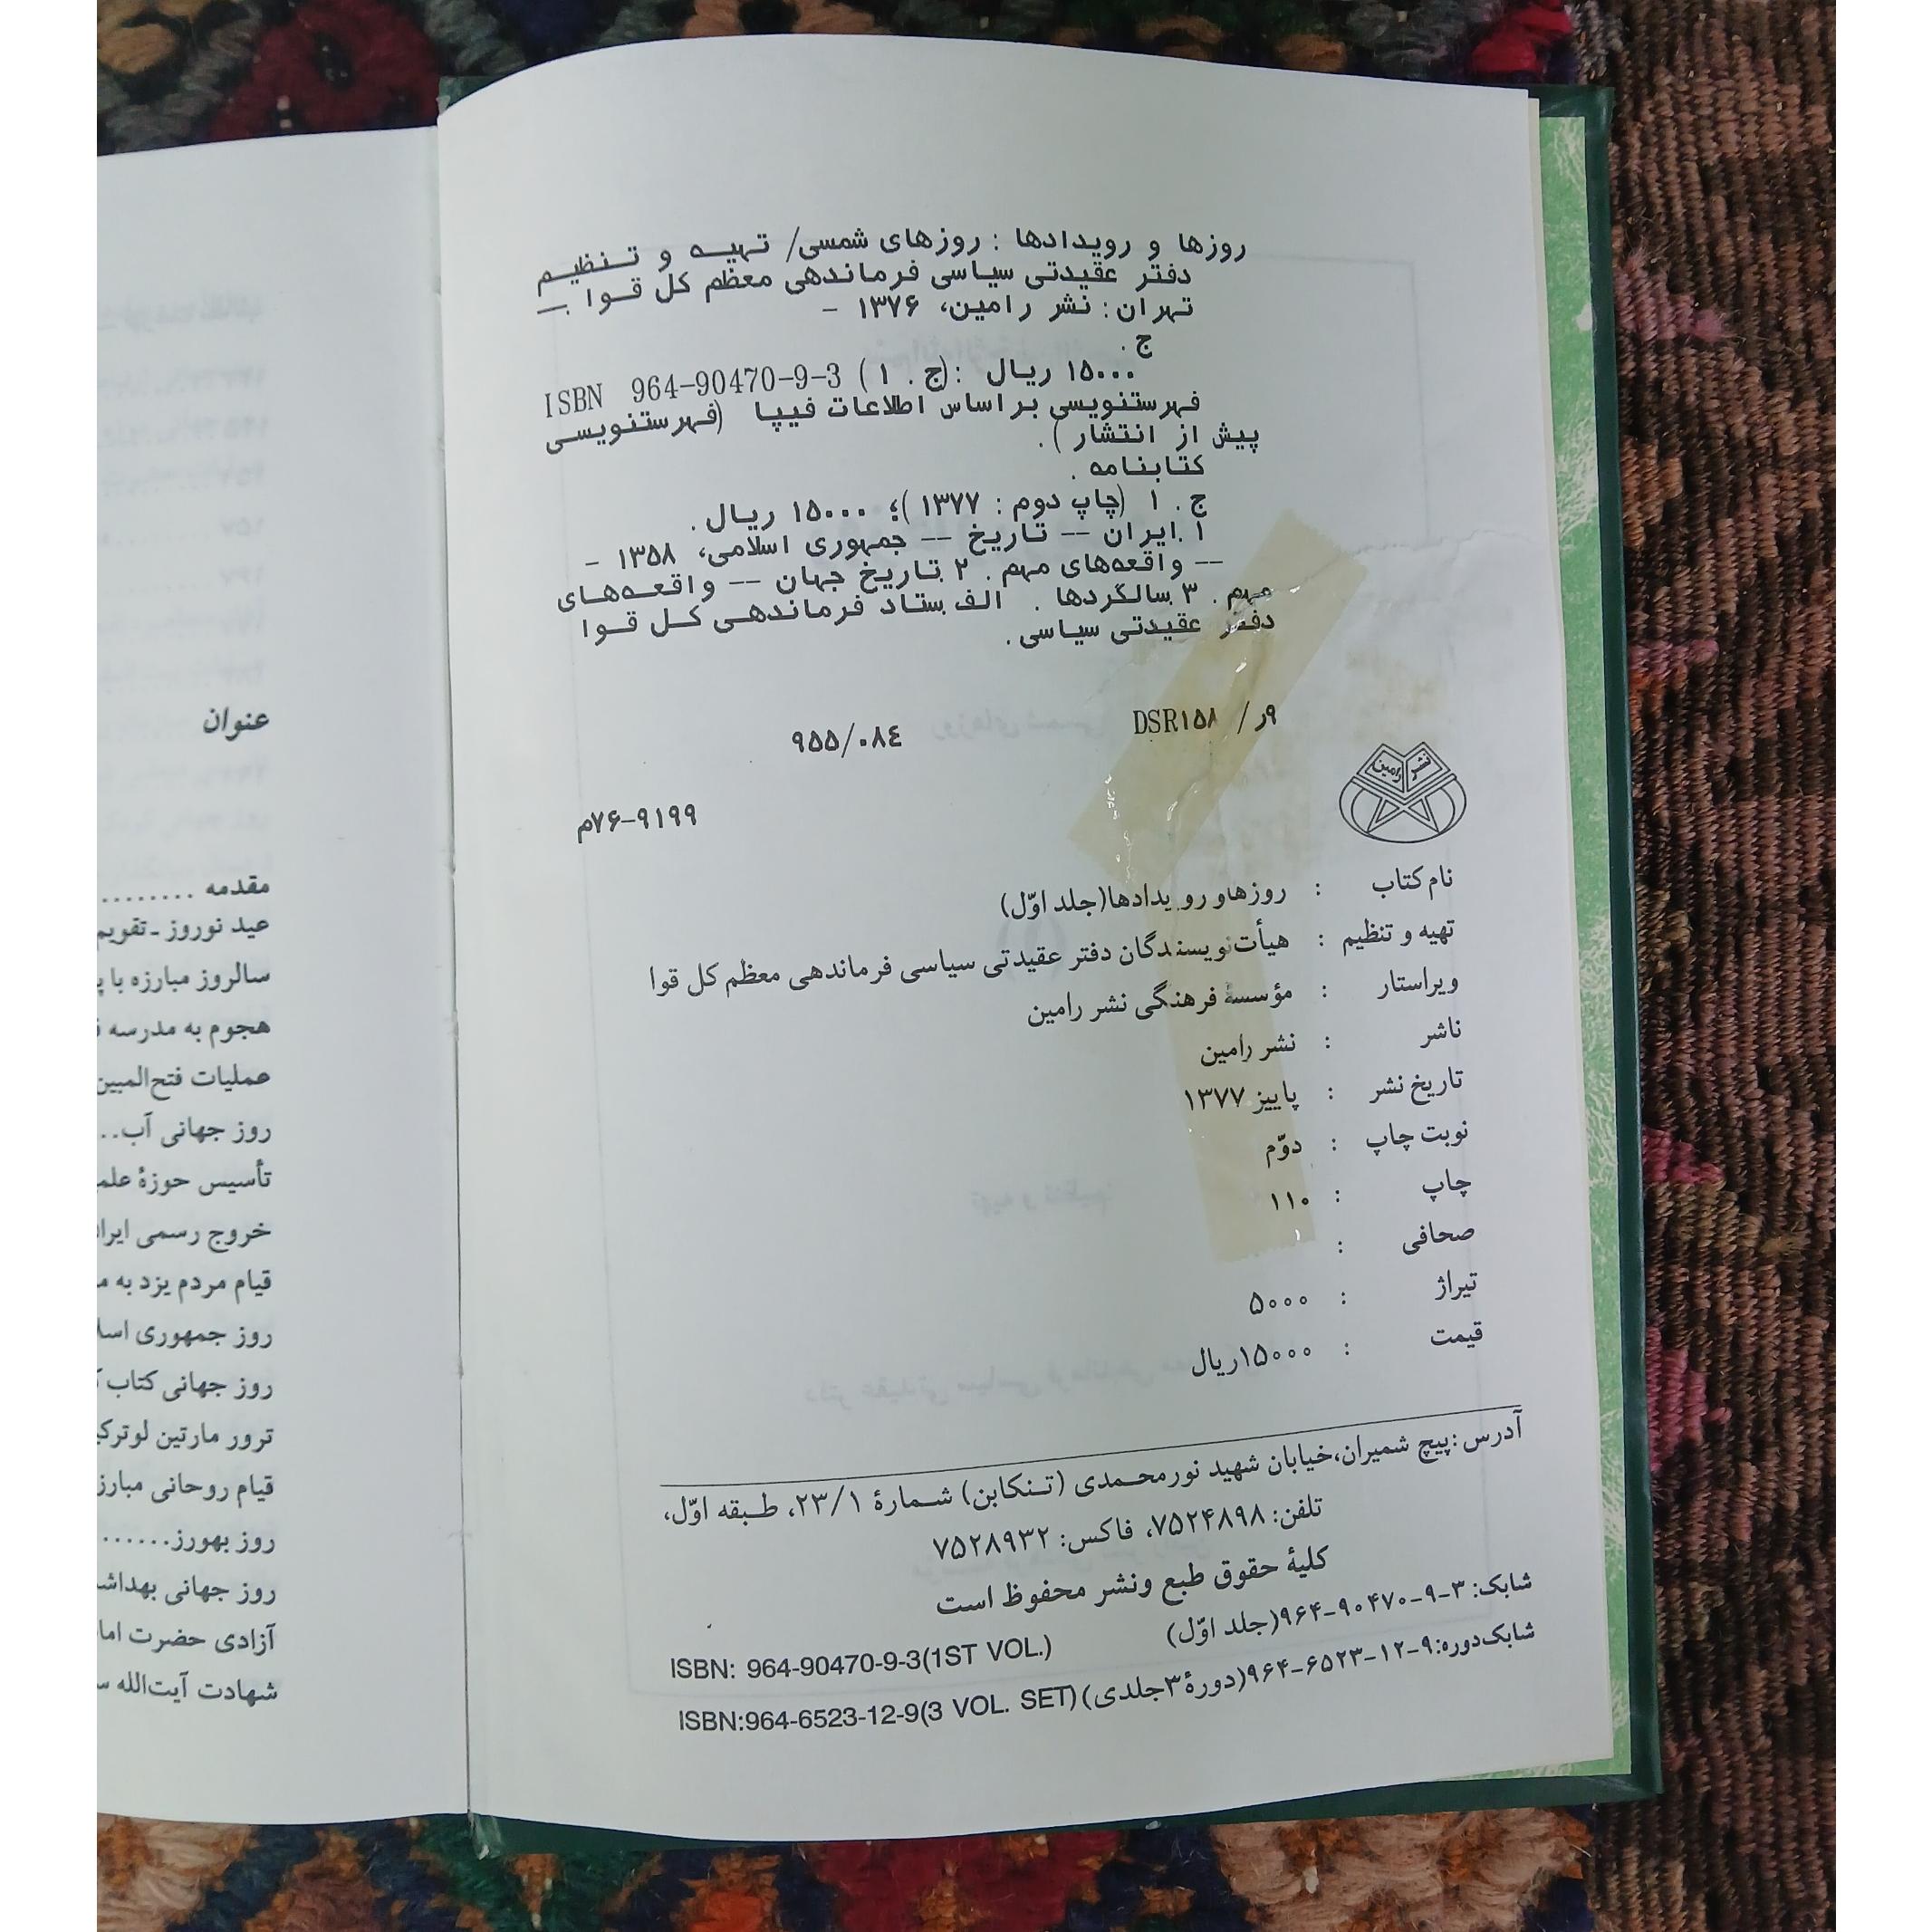 روزها و رویدادها : روزهای شمسی/ تهیه و تنظیم
دفتر عقیدتی سیاسی فرماندهی معظم کل قوا .—
تهران: نشر رامین، ۱۳۷۶ –
ج .
ISBN 964-90470-9-3 (ج. ۱): ۱۵۰۰۰ ریال
فهرستنویسی براساس اطلاعات فیپا (فهرستنویسی
پیش از انتشار).
کتابنامه .
ج. ۱ (چاپ دوم : ۱۳۷۷)؛ ۱۵۰۰۰ ریال.
۱.ایران -- تاریخ -- جمهوری اسلامی، ۱۳۵۸ –
-- واقعه‌های مهم. ۲.تاریخ جهان -- واقعه‌های
مهم. ۳.سالگردها. الف.ستاد فرماندهی کل قوا
دفتر عقیدتی سیاسی.
۹ر/ DSR۱۵۸
۹۵۵/۰۸٤
م۷۶-۹۱۹۹
نشر رامین
نام کتاب : روزهاو رویدادها(جلد اوّل)
تهیه و تنظیم : هیأت‌نویسندگان دفتر عقیدتی سیاسی فرماندهی معظم کل قوا
ویراستار : مؤسسهٔ فرهنگی نشر رامین
ناشر : نشر رامین
تاریخ نشر : پاییز ۱۳۷۷
نوبت چاپ : دوّم
چاپ : ۱۱۰
صحافی :
تیراژ : ۵۰۰۰
قیمت : ۱۵۰۰۰ریال
آدرس:پیچ شمیران،خیابان شهید نورمحمدی (تنکابن) شمارهٔ ۲۳/۱، طبقه اوّل،
تلفن: ۷۵۲۴۸۹۸، فاکس: ۷۵۲۸۹۳۲
کلیهٔ حقوق طبع ونشر محفوظ است
شابک: ۳-۹-۹۰۴۷۰-۹۶۴(جلد اوّل) ISBN: 964-90470-9-3(1ST VOL.)
شابک‌دوره:۹-۱۲-۶۵۲۳-۹۶۴(دورهٔ۳جلدی) ISBN:964-6523-12-9(3 VOL. SET)
عنوان
مقدمه ........
عید نوروز ـ تقویم
سالروز مبارزه با
هجوم به مدرسه
عملیات فتح‌المبین
روز جهانی آب..
تأسیس حوزهٔ
خروج رسمی
قیام مردم یزد به
روز جمهوری
روز جهانی کتاب
ترور مارتین
قیام روحانی
روز بهورز......
روز جهانی
آزادی حضرت
شهادت آیت‌الله